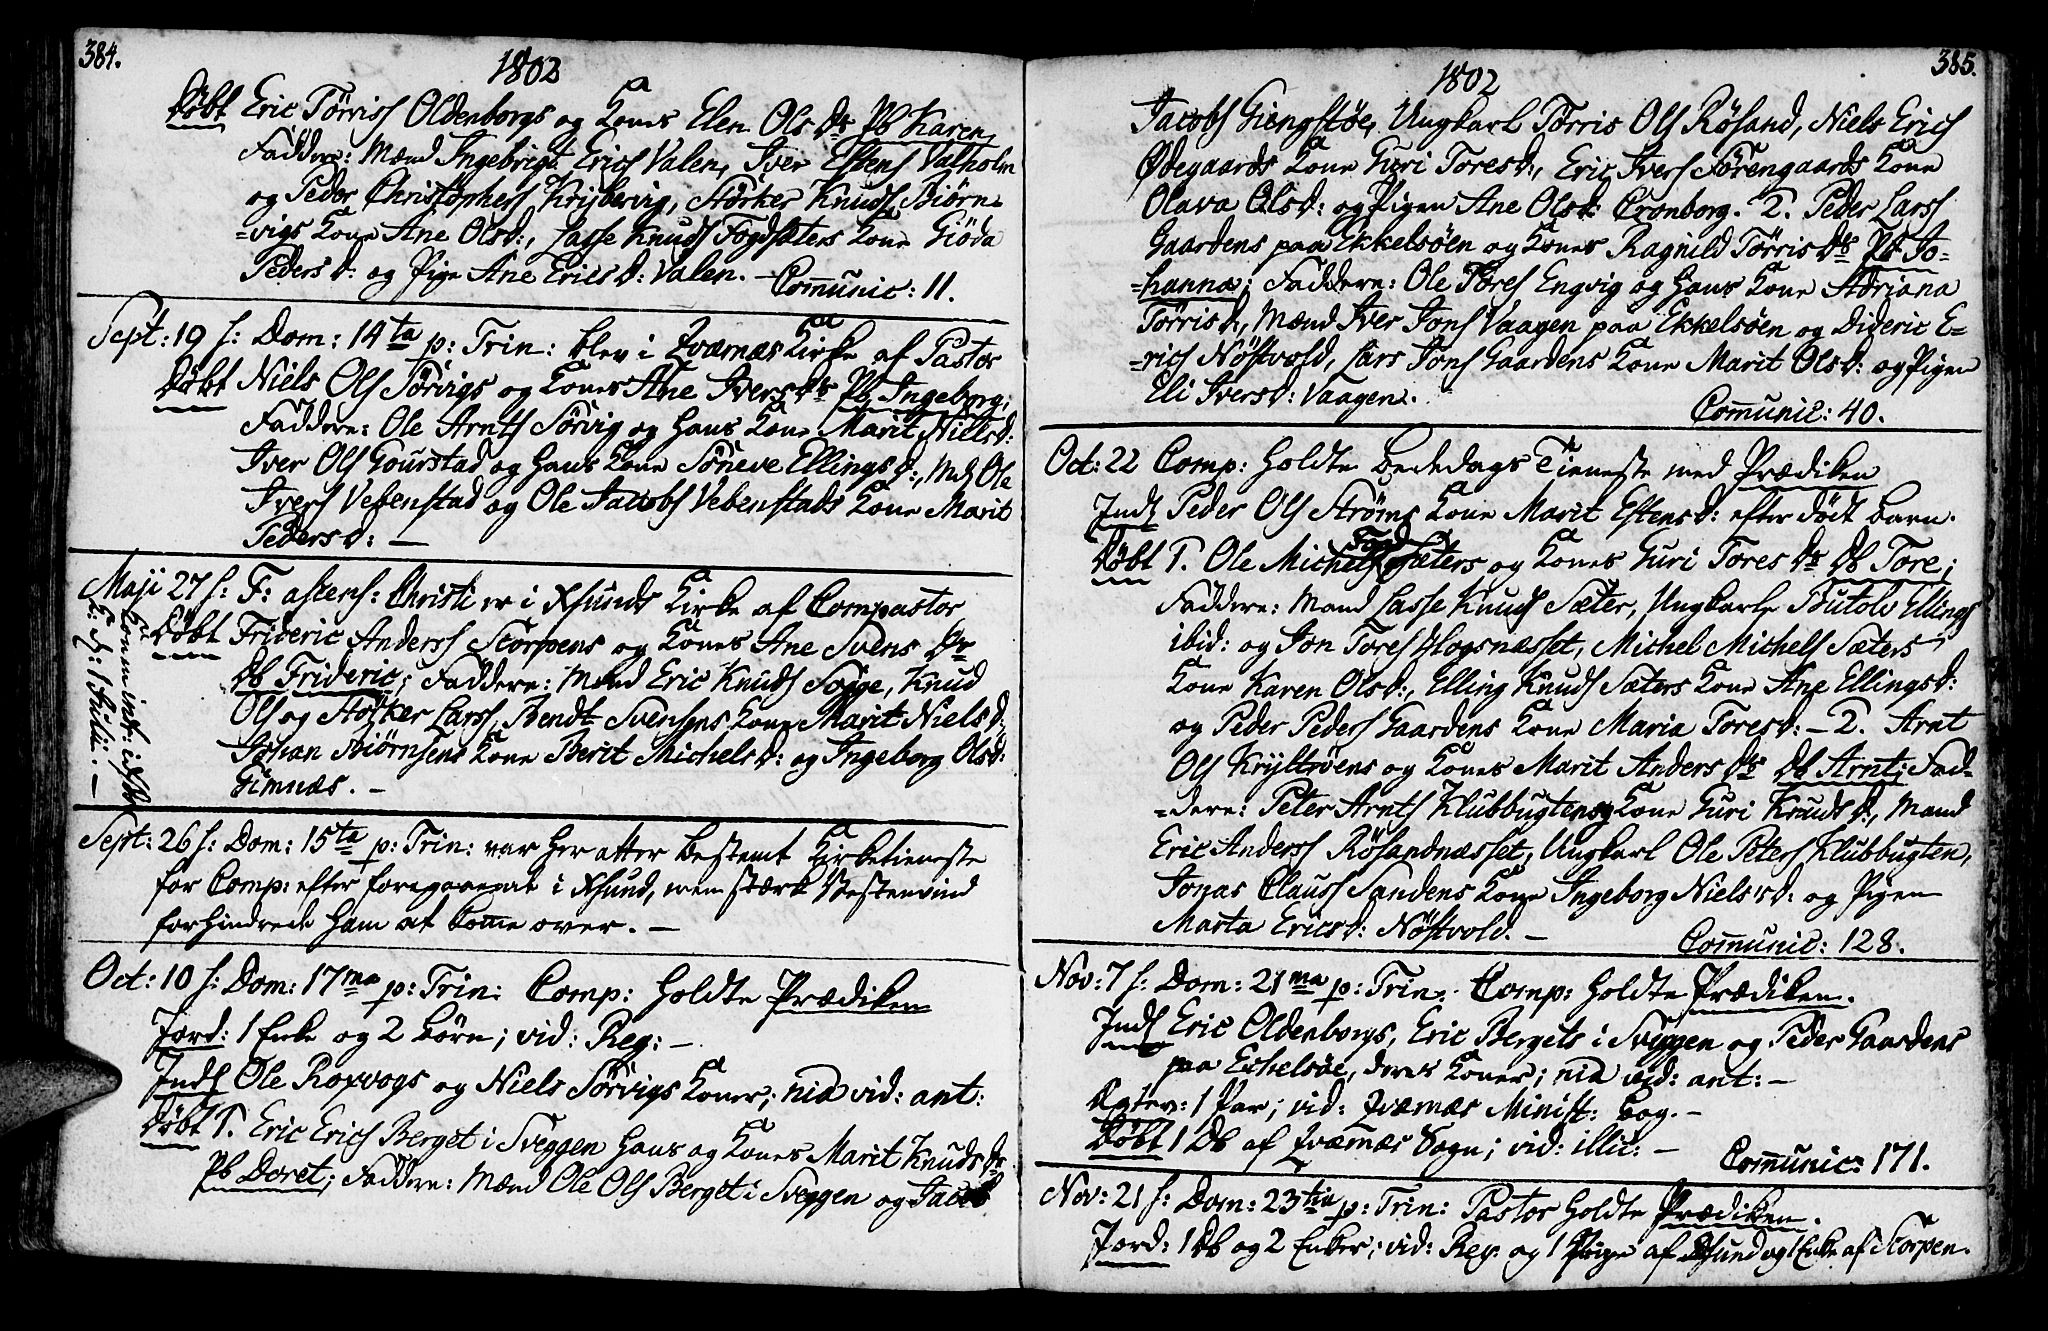 384.
1802
Döbt Eric Törriss Oldenborgs og Kones Elen Ols Dr Pb Karen,
Faddere: Mænd Ingebrigt Erics Valen, Iver Estens Valholm
og Peder Christophers Krisbervig, Störker Knuds Biörn-
-vigs Kone Ane Olsd:, Lasse Knuds Fogdsæters Kone Giöda
Pedersd: og Pige Ane Ericsd: Valen. - Communic: 11.
Sept: 19 s: Dom: 14ta p: Trin: blev i Qværnæs Kirke af Pastor
Döbt Niels Ols Sörvigs og Kones Ane Ivers Dr Pb Ingeborg;
Faddere: Ole Arnts Sörvig og Hans Kone Marit Nielsd:
Iver Ols Gourstad og Hans Kone Söneve Ellingsd:, Md Ole
Ivers Vebenstad og Ole Jacobs Vebenstads Kone Marit
Pedersd: -
Maji 27 s: F: ascens: Christi er i Xsunds Kirke af Compastor
Döbt Frideric Anderss Storpens og Kones Ane Svens Dr
Db Frideric; Faddere: Mænd Eric Knuds Sogge, Knud
Ols og Stölker Larss, Bendt Svensens Kone Marit Nielsd:
Johan Biörnsens Kone Berit Michelsd: og Ingeborg Olsd:
Gimnæs. -
Sept: 26 s: Dom: 15ta p: Trin: var her atter bestemt Kirketieneste
for Comp: efter foregaaende i Xsund, men stærk Vestenvind
forhindrede ham at kome over. -
Oct: 10 s: Dom: 17ma p: Trin: Comp: holdte Prædiken
Jord: 1 Enke og 2 börn; vid: Reg: -
Inds Ole Roxvogs og Niels Sörvigs Koner; nid vid: ant:
Döbt 1. Eric Erics Berget i Sveggen hans og Kones Marit Knuds Dr
Pb Doret; Faddere: Mænd Ole Ols Berget i Sveggen og Jacob
385.
1802
Jacobs Giengstöe, Ungkarl Törris Ols Rösand, Niels Erics
Ödegaards Kone Guri Toresd:, Eric Ivers Förengaards Kone
Olava Olsd: og Pigen Ane Olsd: Cronborg. 2. Peder Larss
Gaardens paa Ekkelsöen og Kones Ragnild Törris Dr Pb Jo-
-hanna; Faddere: Ole Tores Engvig og Hans Kone Adriana
Törrisd:, Mænd Iver Jons Vaagen paa Ekkelsöen og Dideric E-
-rics Nöstvold, Lars Jons Gaardens Kone Marit Olsd: og Pigen
Eli Iversd: Vaagen.
Communic: 40.
Oct: 22 Comp: holdte bededags Tieneste med Prædiken
Inds Peder Ols Ströms Kone Marit Estensd: efter dödt barn.
Döbt 1. Ole Michels Fogdsæters og Kones Guri Tores Dr Db Tore;
Faddere: Mænd Lasse Knuds Sæter, Ungkarle Butolv Ellings
ibid: og Jon Tores Hogsnæsset, Michel Michels Sæters
Kone Karen Olsd:, Elling Knuds Sæters Kone Ane Ellingsd:
og Peder Peders Gaardens Kone Maria Toresd: - 2. Arnt
Ols Krystövens og Kones Marit Anders Drs Db Arnt; Fad-
-dere: Peter Arnts Klubbugtens og Kone Guri Knudsd:, Mænd
Eric Anderss Rösandnæsset, Ungkarl Ole Peters Klubbugten,
Jonas Clauss Sandens Kone Ingeborg Nielsd: og Pigen
Marta Ericsd: Nöstvold. -
Communic: 128.
Nov: 7 s: Dom: 21ma p: Trin: Comp: holdte Prædiken.
Inds Eric Oldenborgs, Eric Bergets i Sveggen og Peder Gaardens
paa Echelsöe, deres Koner; nid vid: ant: -
Egtev: 1 Par; vid: Qværnæs Minist: bog. -
Döbt 1 Db af Qværnæs Sogn; vid: illic: -
Communic: 171.
Nov: 21 s: Dom: 23tia p: Trin: Pastor holdte Prædiken.
Jord: 1 Db og 2 Enker; vid: Reg: og 1 Pige af Xsund og 1 Enke af Storpen.